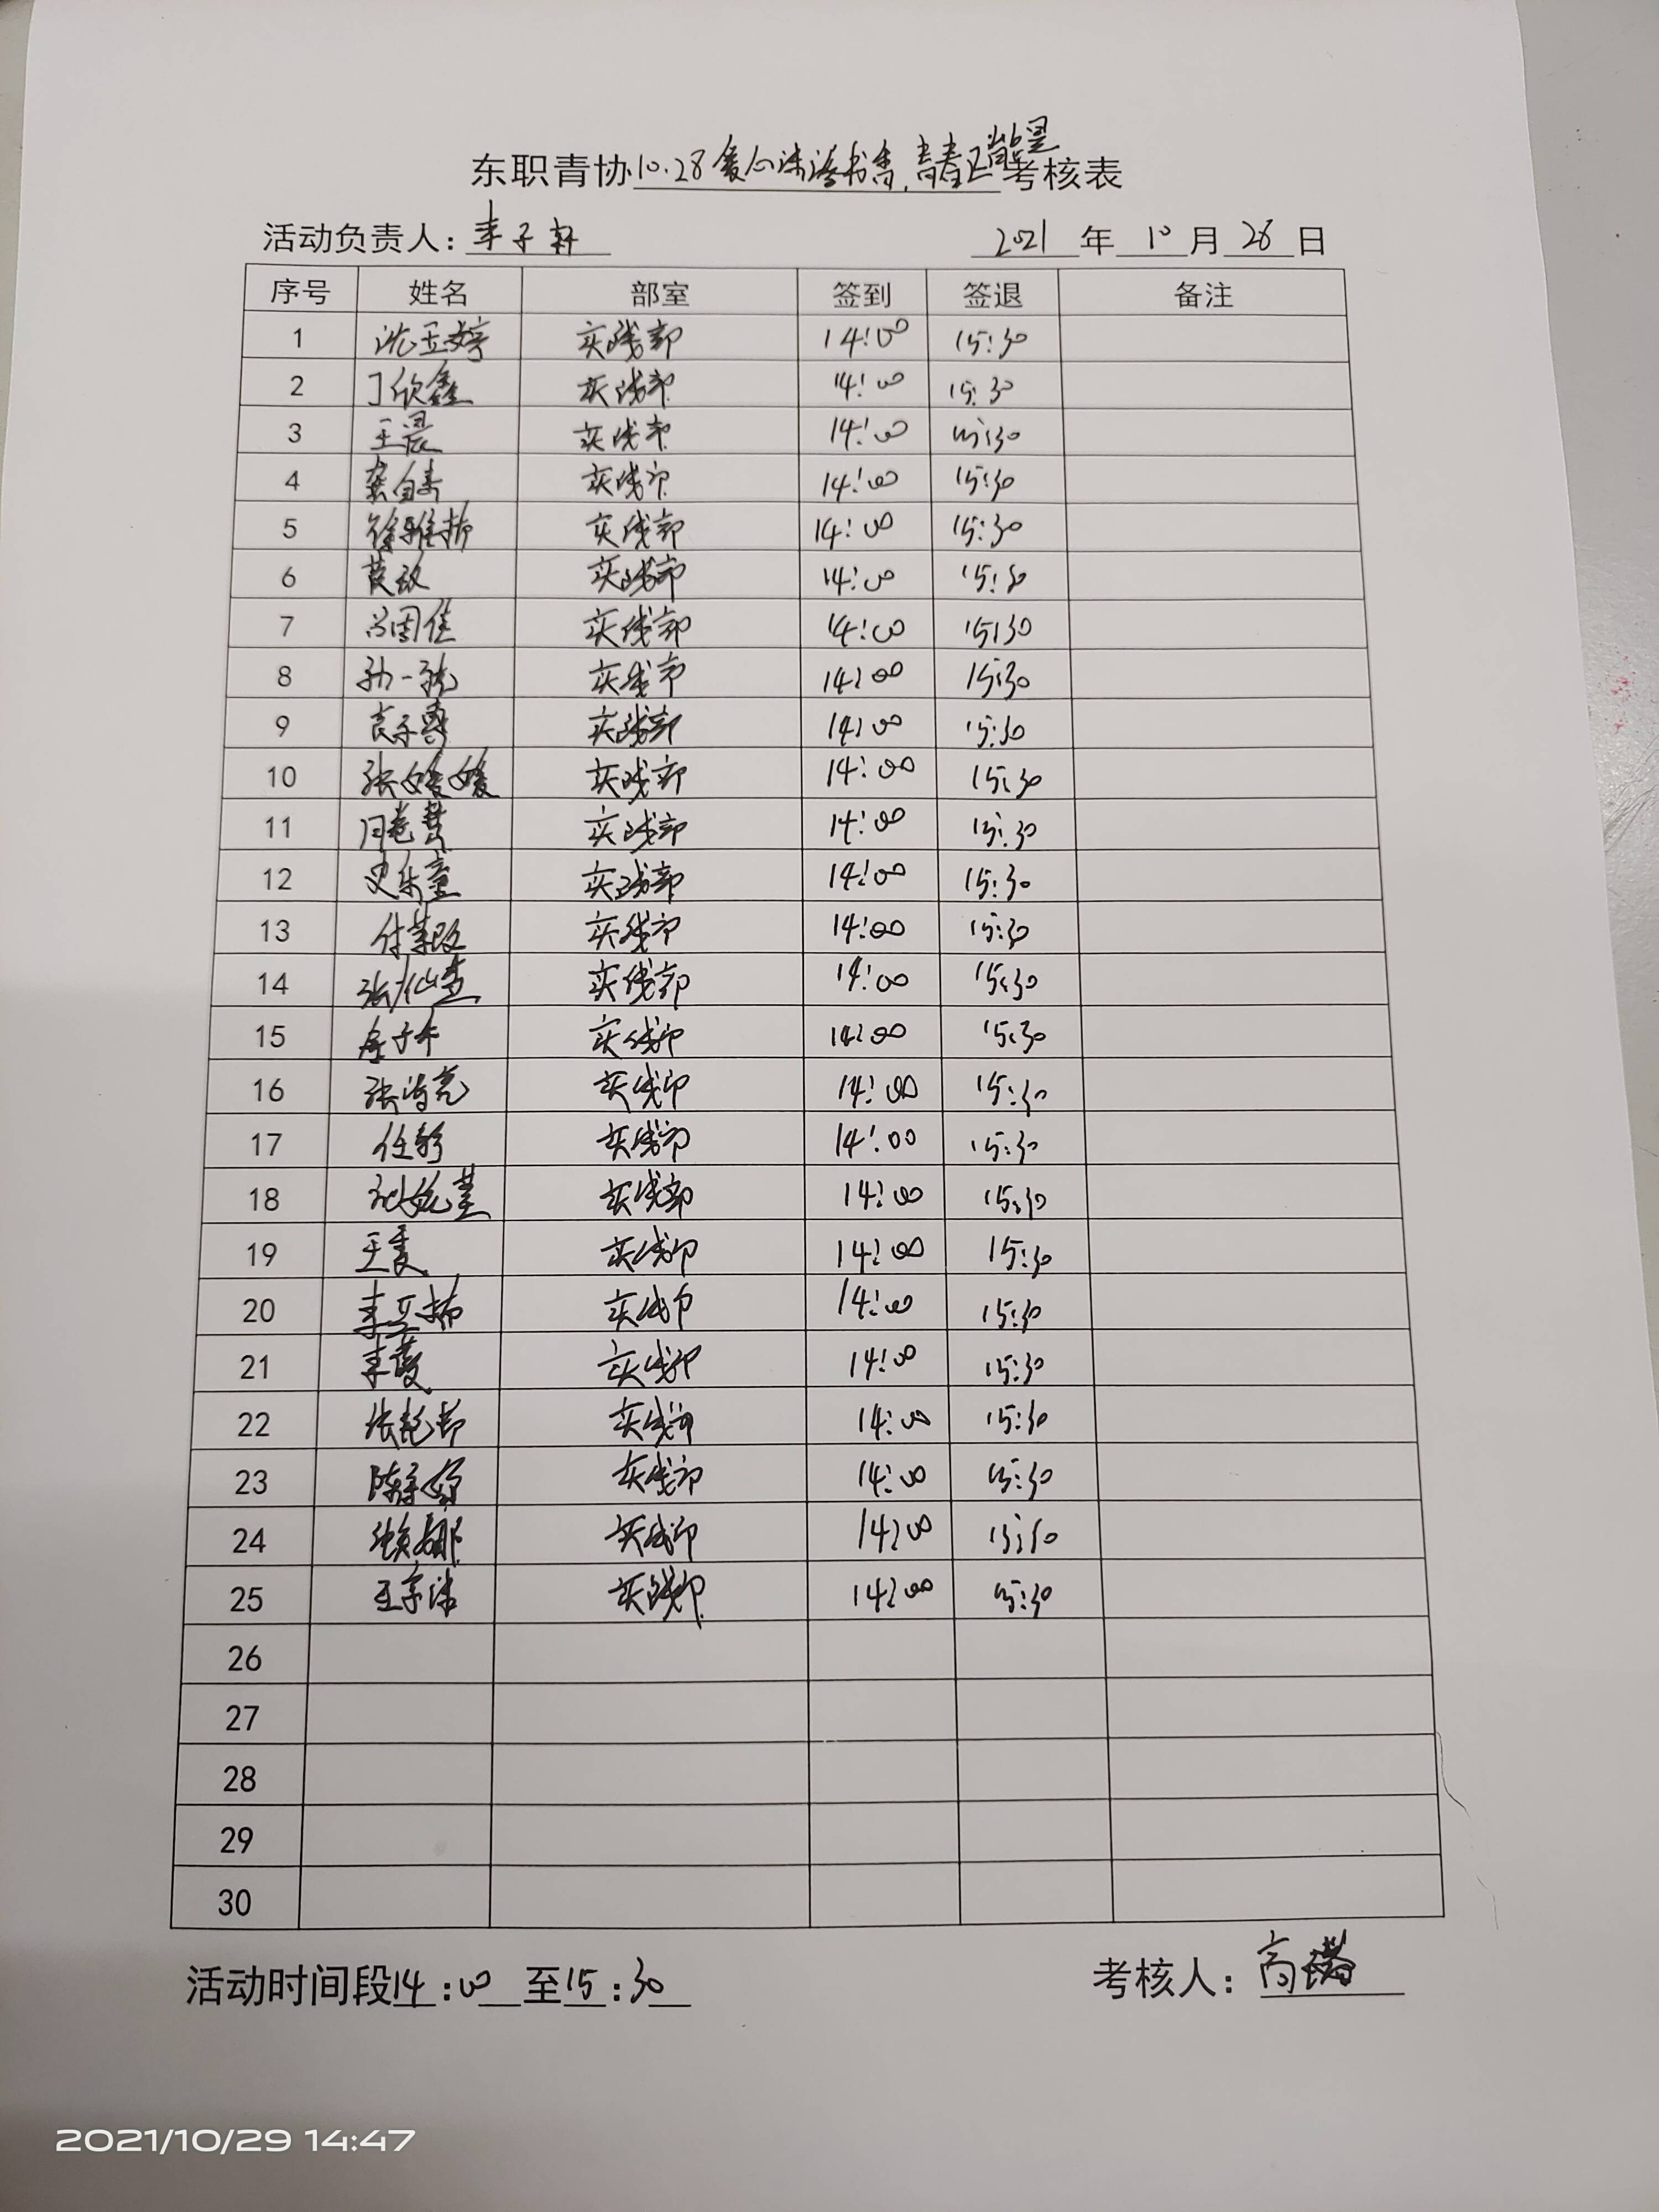 东职青协10.28爱心沐浴书香,青春正能量考核表
活动负责人:李子轩 2021年10月28日
序号 姓名 部室 签到 签退 备注
1 沈玉婷 实践部 14:00 15:30
2 丁欣鑫 实践部 14:00 15:30
3 王晨 实践部 14:00 15:30
4 实践部 14:00 15:30
5 徐雅茹 实践部 14:00 15:30
6 实践部 14:00 15:30
7 吕周佳 实践部 14:00 15:30
8 孙一 实践部 14:00 15:30
9 实践部 14:00 15:30
10 张媛媛 实践部 14:00 15:30
11 实践部 14:00 15:30
12 史乐童 实践部 14:00 15:30
13 实践部 14:00 15:30
14 张 实践部 14:00 15:30
15 实践部 14:00 15:30
16 张诗亮 实践部 14:00 15:30
17 任静 实践部 14:00 15:30
18 实践部 14:00 15:30
19 王 实践部 14:00 15:30
20 李 实践部 14:00 15:30
21 李 实践部 14:00 15:30
22 张 实践部 14:00 15:30
23 陈 实践部 14:00 15:30
24 实践部 14:00 15:30
25 王 实践部 14:00 15:30
26
27
28
29
30
活动时间段14:00至15:30 考核人:高
2021/10/29 14:47